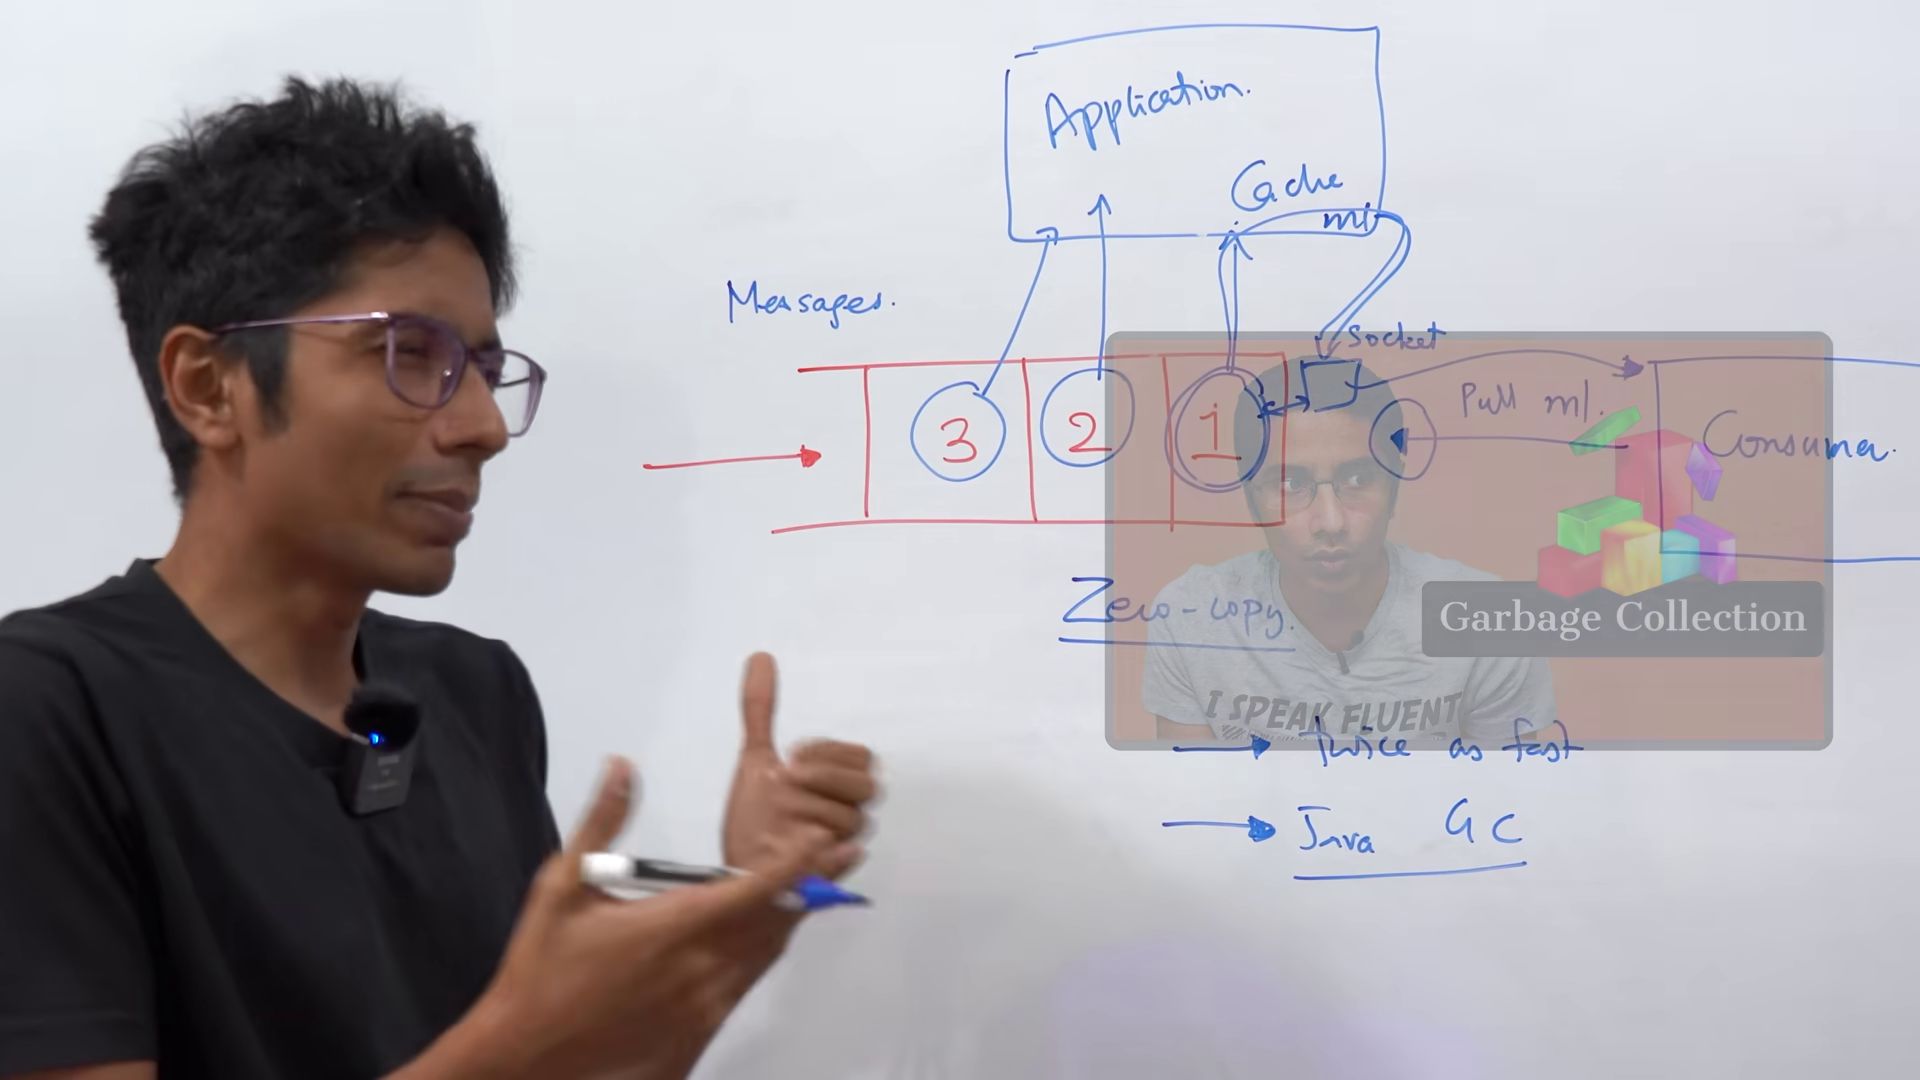 Application.
Cache
m1
Messages.
socket
3 2 1
Pull m1.
Consumer.
Zero-copy.
Garbage Collection
I SPEAK FLUENT
twice as fast
Java GC